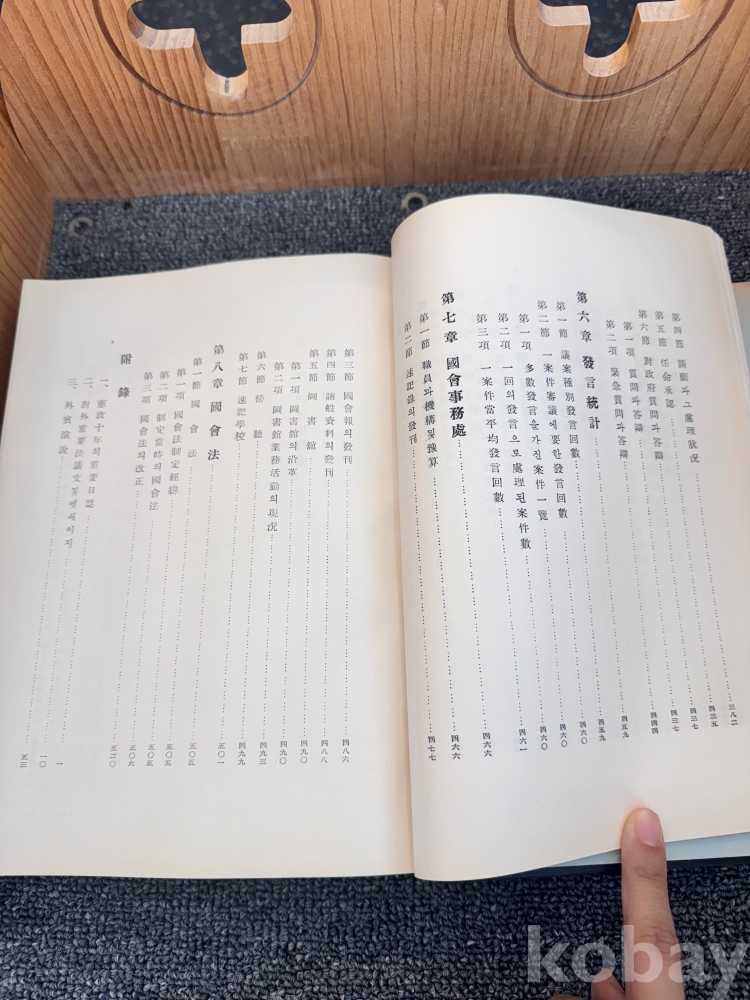 第四節 請願과 그 處理狀況 三八二
第五節 任命承認 四三五
第六節 對政府質問과 答辯 四三七
第一項 質問과 答辯 四三七
第二項 緊急質問과 答辯 四四四
第六章 發言統計 四五九
第一節 議案種別發言回數 四五九
第二節 一案件審議에 要한 發言回數 四六〇
第一項 多數發言을 가진 案件一覽 四六〇
第二項 一回의 發言으로 處理된 案件數 四六一
第三項 一案件當平均發言回數 四六六
第七章 國會事務處
第一節 職員과 機構및豫算 四六六
第二節 速記錄의發刊 四七七
第三節 國會報의發刊 四八六
第四節 諸般資料의發刊 四八八
第五節 圖書館 四九〇
第一項 圖書館의沿革 四九〇
第二項 圖書館業務活動의現況 四九三
第六節 傍聽 四九九
第七節 速記學校 五〇一
第八章 國會法 五〇五
第一節 國會法 五〇五
第一項 國會法制定經緯 五〇五
第二項 制定當時의國會法 五〇六
第三項 國會法의改正 五二〇
附錄
一、憲政十年의重要日誌 一
二、對外重要決議文및메세이지 一〇
三、外賓演說 五三
kobay